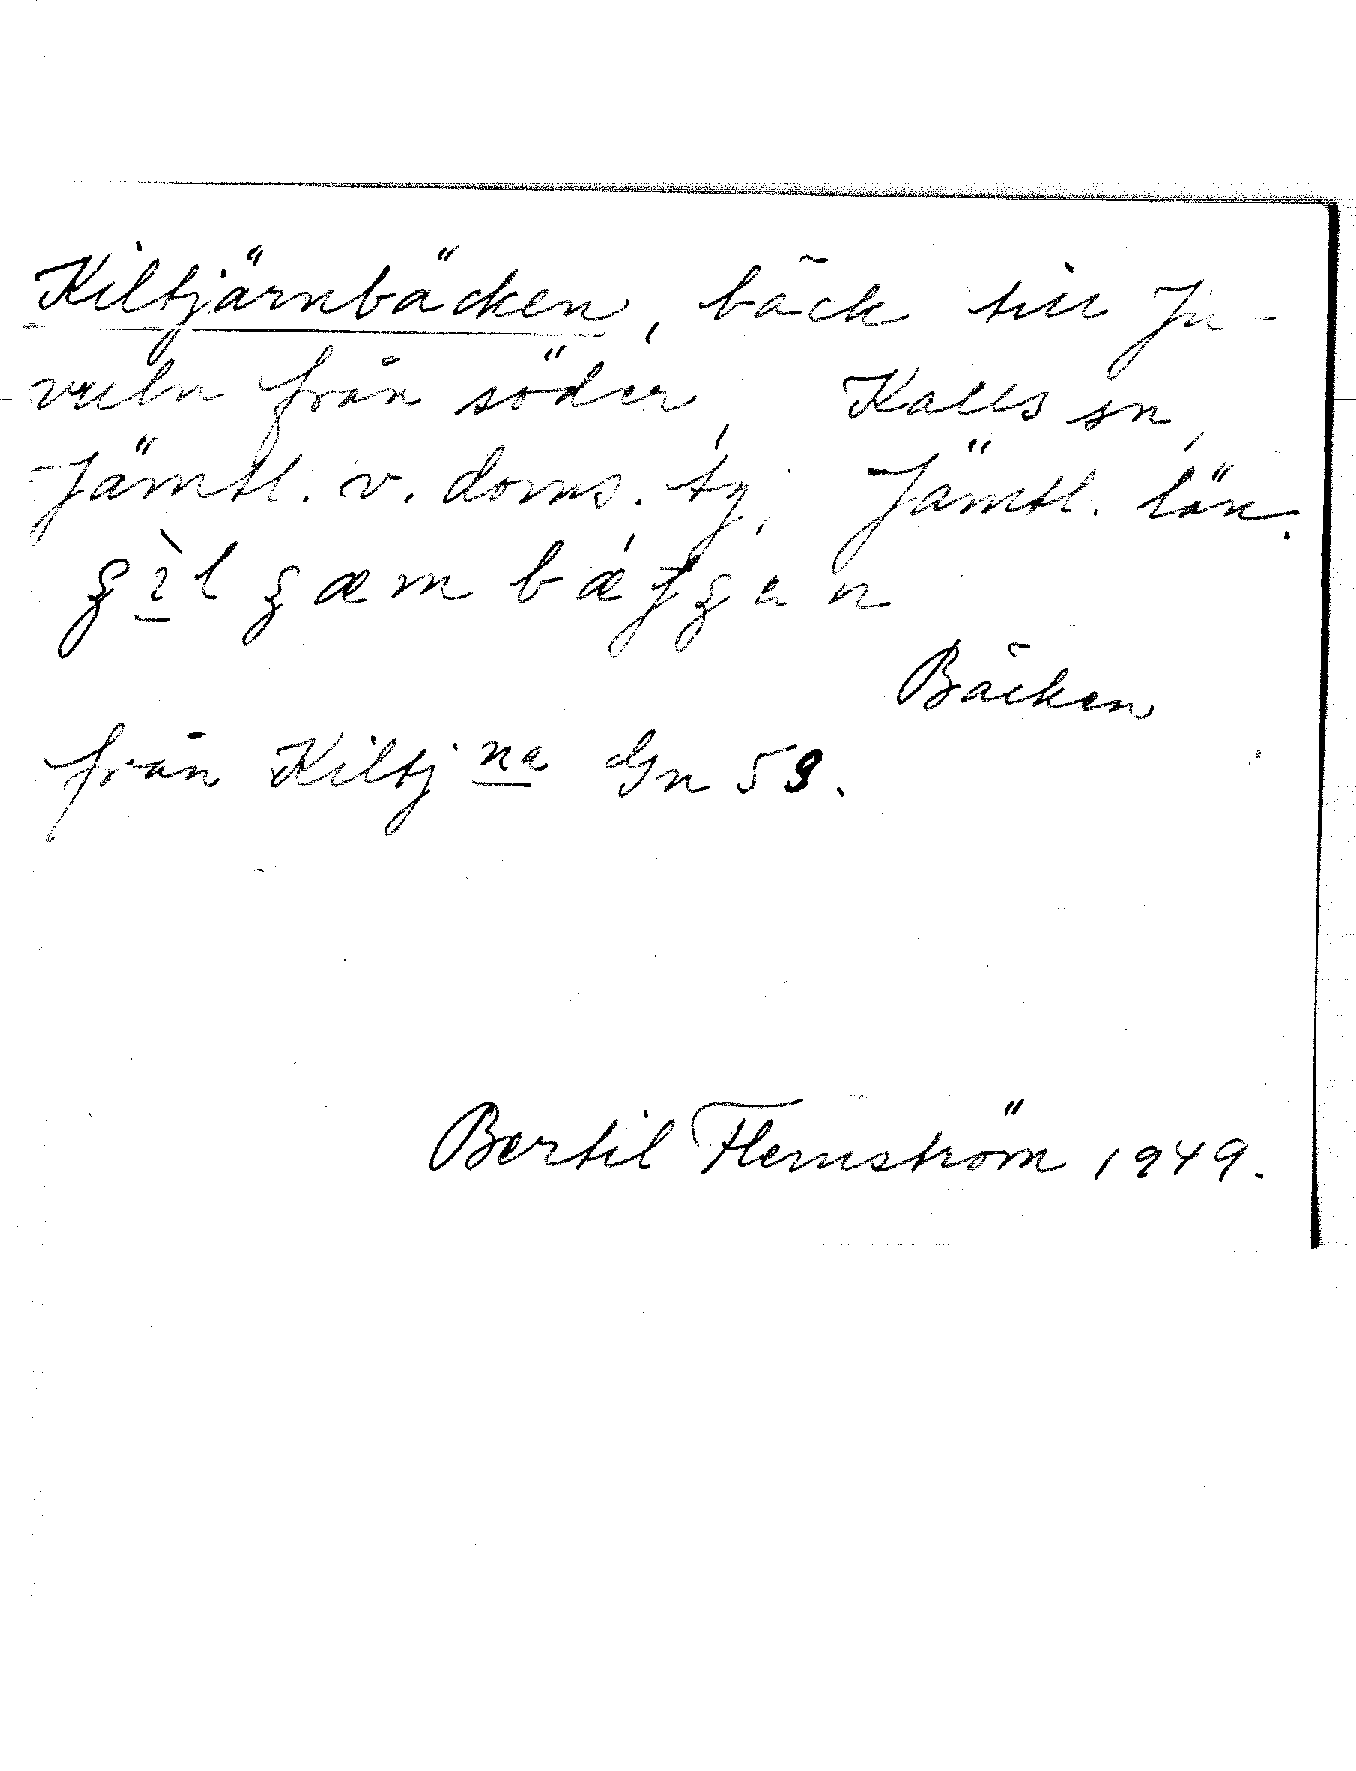 Kiltjärnbäcken, bäck till Ju-
veln från söder, Kalls sn,
Jämtl. v. doms. tg, Jämtl. län.
Bäcken
från Kiltjna Gn 59.
Bertil Flemström 1949.